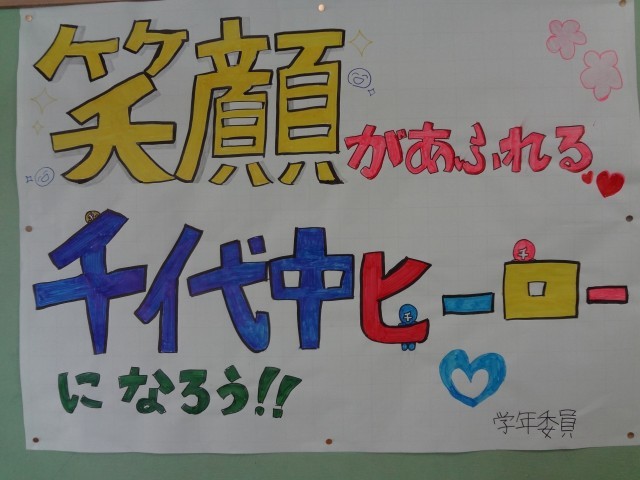 笑顔があふれる
千代中ヒーロー
になろう!!
学年委員